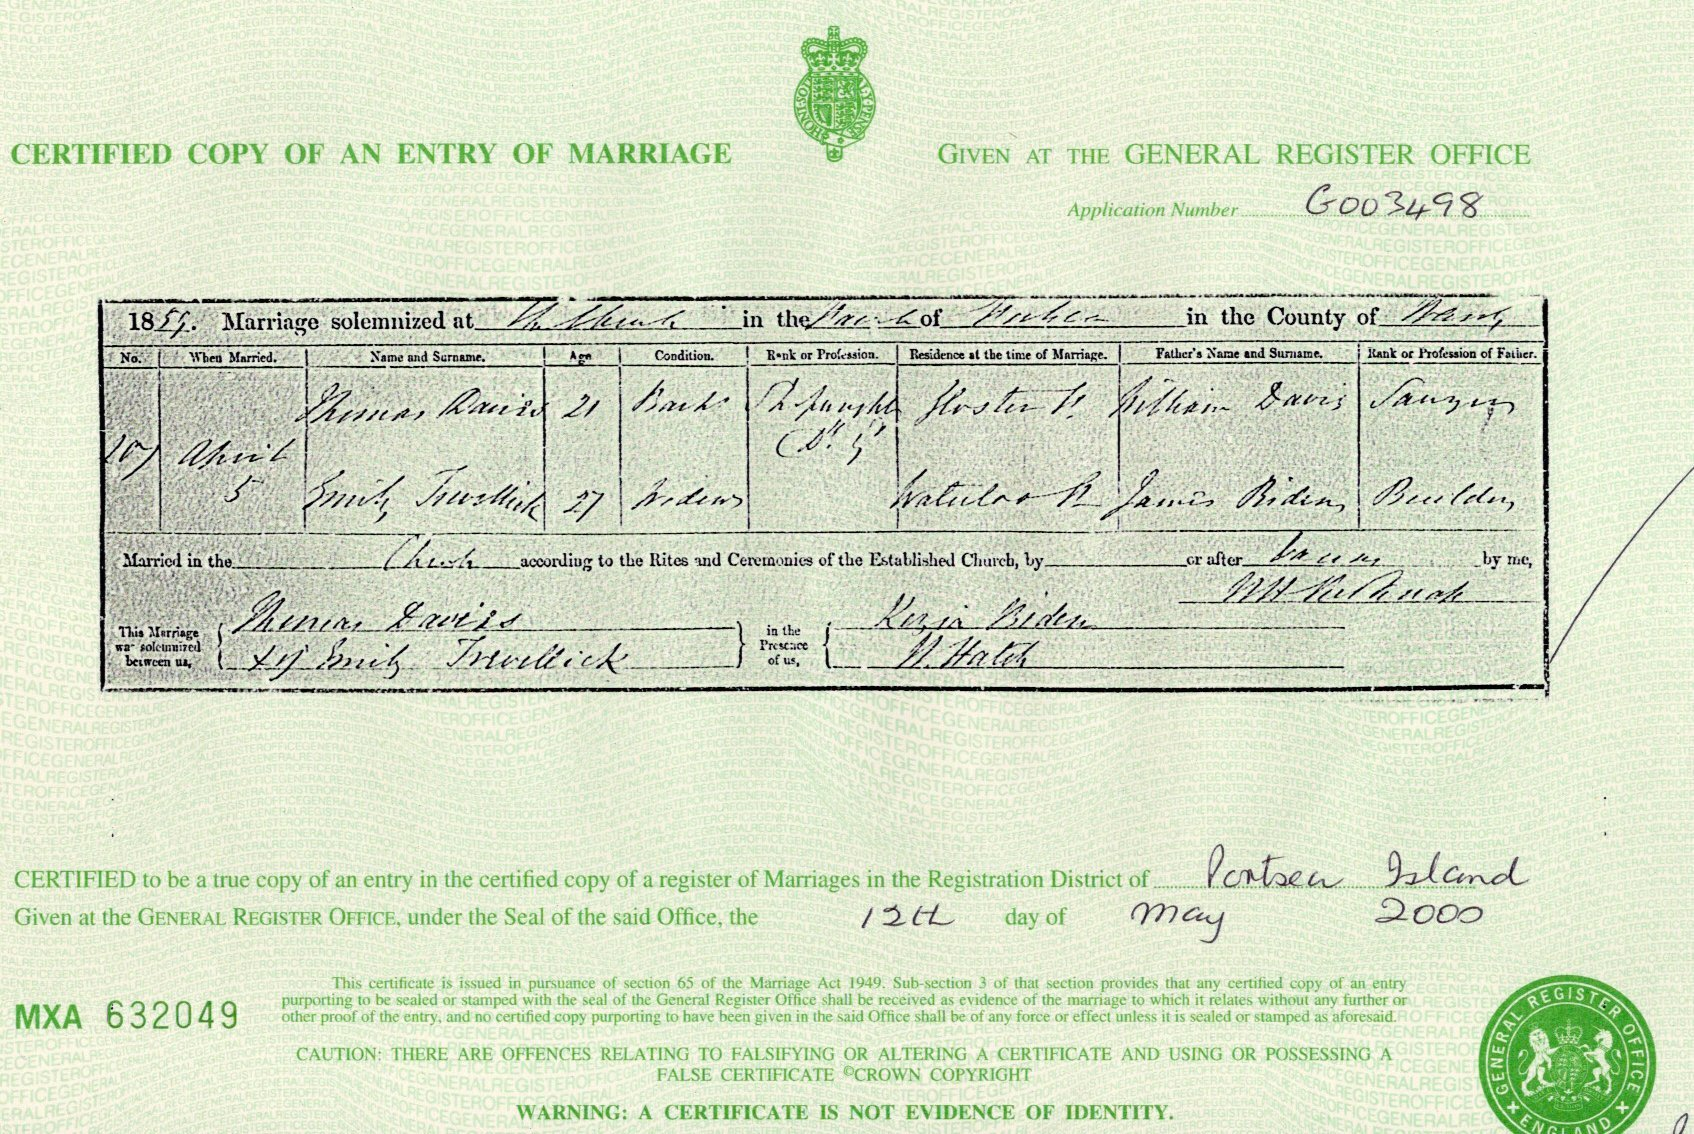 CERTIFIED COPY OF AN ENTRY OF MARRIAGE
GIVEN AT THE GENERAL REGISTER OFFICE
Application Number G003498
1859. Marriage solemnized at The Church in the Parish of in the County of Hants
No. When Married. Name and Surname. Age Condition. Rank or Profession. Residence at the time of Marriage. Father's Name and Surname. Rank or Profession of Father.
107 April 5
Thomas Daviss 21 Bach William Davis Sawyer
Emily Trevellick 27 Widow Waterloo St James Biden Builder
Married in the Church according to the Rites and Ceremonies of the Established Church, by or after banns by me,
This Marriage was solemnized between us,
Thomas Daviss
Emily Trevellick
in the Presence of us,
Kezia Biden
N. Hatch
CERTIFIED to be a true copy of an entry in the certified copy of a register of Marriages in the Registration District of Portsea Island
Given at the GENERAL REGISTER OFFICE, under the Seal of the said Office, the 12th day of May 2000
This certificate is issued in pursuance of section 65 of the Marriage Act 1949. Sub-section 3 of that section provides that any certified copy of an entry
purporting to be sealed or stamped with the seal of the General Register Office shall be received as evidence of the marriage to which it relates without any further or
other proof of the entry, and no certified copy purporting to have been given in the said Office shall be of any force or effect unless it is sealed or stamped as aforesaid.
MXA 632049
CAUTION: THERE ARE OFFENCES RELATING TO FALSIFYING OR ALTERING A CERTIFICATE AND USING OR POSSESSING A
FALSE CERTIFICATE ©CROWN COPYRIGHT
WARNING: A CERTIFICATE IS NOT EVIDENCE OF IDENTITY.
GENERAL REGISTER OFFICE
ENGLAND